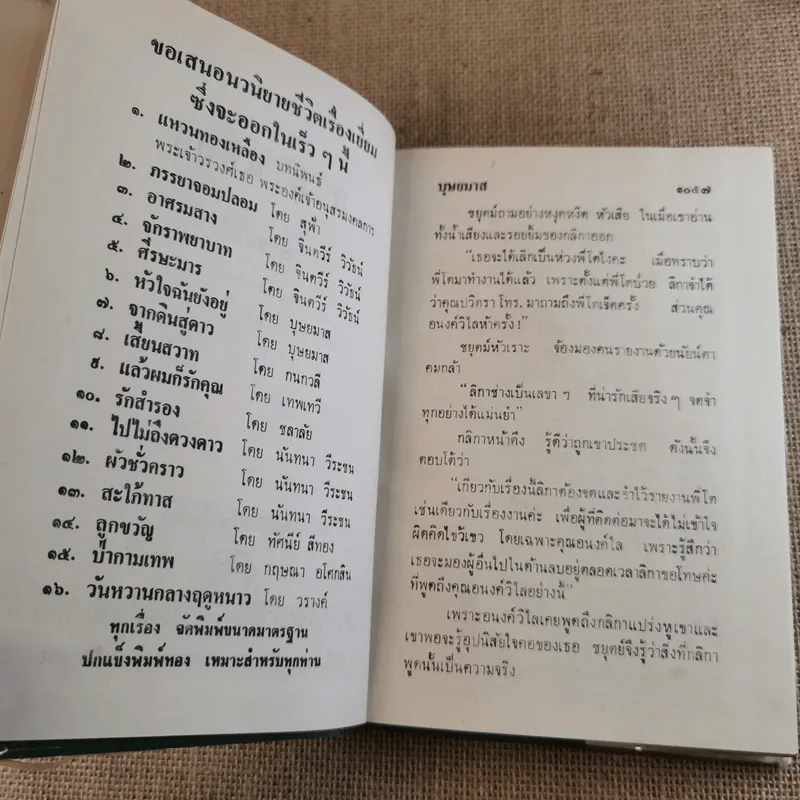 ขอเสนอนวนิยายชีวิตเรื่องเยี่ยม
ซึ่งจะออกในเร็ว ๆ นี้
๑. แหวนทองเหลือง บทนิพนธ์
พระเจ้าวรวงศ์เธอ พระองค์เจ้าอนุสรมงคลการ
๒. ภรรยาจอมปลอม โดย สุฟ้า
๓. อาศรมสาง โดย จินตวีร์ วิวัธน์
๔. จักราพยาบาท โดย จินตวีร์ วิวัธน์
๕. ศีรษะมาร โดย จินตวีร์ วิวัธน์
๖. หัวใจฉันยังอยู่ โดย บุษยมาส
๗. จากดินสู่ดาว โดย บุษยมาส
๘. เสี้ยนสวาท โดย กนกวลี
๙. แล้วผมก็รักคุณ โดย เทพเทวี
๑๐. รักสำรอง โดย ชลาลัย
๑๑. ไปไม่ถึงดวงดาว โดย นันทนา วีระชน
๑๒. ผัวชั่วคราว โดย นันทนา วีระชน
๑๓. สะใภ้ทาส โดย นันทนา วีระชน
๑๔. ลูกขวัญ โดย ทัศนีย์ สีทอง
๑๕. ป่ากามเทพ โดย กฤษณา อโศกสิน
๑๖. วันหวานกลางฤดูหนาว โดย วรางค์
ทุกเรื่อง จัดพิมพ์ขนาดมาตรฐาน
ปกแข็งพิมพ์ทอง เหมาะสำหรับทุกท่าน
บุษยมาส ๑๐๕๗
ชยุตม์ถามอย่างหงุดหงิด หัวเสีย ในเมื่อเขาอ่าน
ทั้งน้ำเสียงและรอยยิ้มของกลิกาออก
"เธอจะได้เลิกเป็นห่วงพี่โตไงคะ เมื่อทราบว่า
พี่โตมาทำงานได้แล้ว เพราะตั้งแต่พี่โตป่วย ลิกาจำได้
ว่าคุณปวิตรา โทร. มาถามถึงพี่โตเจ็ดครั้ง ส่วนคุณ
อนงค์วิไลห้าครั้ง!"
ชยุตม์หัวเราะ จ้องมองคนรายงานด้วยนัยน์ตา
คมกล้า
"ลิกาช่างเป็นเลขา ฯ ที่น่ารักเสียจริง ๆ จดจำ
ทุกอย่างได้แม่นยำ"
กลิกาหน้าตึง รู้ดีว่าถูกเขาประชด ดังนั้นจึง
ตอบโต้ว่า
"เกี่ยวกับเรื่องนี้ลิกาต้องจดและจำไว้รายงานพี่โต
เช่นเดียวกับเรื่องงานค่ะ เพื่อผู้ที่ติดต่อมาจะได้ไม่เข้าใจ
ผิดคิดไขว้เขว โดยเฉพาะคุณอนงค์ไล เพราะรู้สึกว่า
เธอจะมองผู้อื่นไปในด้านลบอยู่ตลอดเวลาลิกาขอโทษค่ะ
ที่พูดถึงคุณอนงค์วิไลอย่างนี้"
เพราะอนงค์วิไลเคยพูดถึงกลิกาแปร่งหูเขาและ
เขาพอจะรู้อุปนิสัยใจคอของเธอ ชยุตย์จึงรู้ว่าสิ่งที่กลิกา
พูดนั้นเป็นความจริง